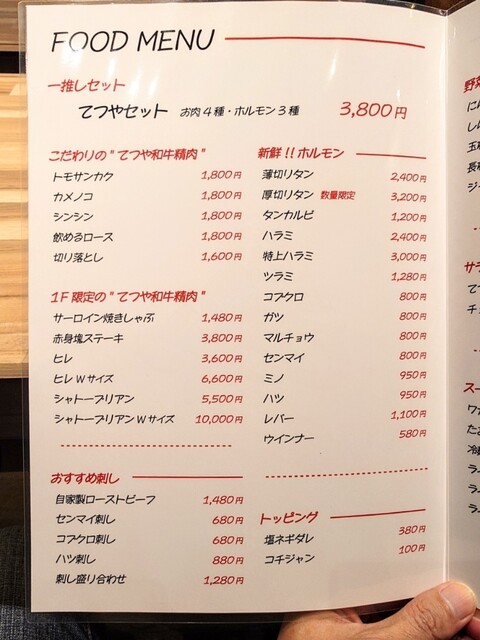 FOOD MENU
一推しセット
てつやセット お肉4種・ホルモン3種 3,800円
こだわりの"てつや和牛精肉"
トモサンカク 1,800円
カメノコ 1,800円
シンシン 1,800円
飲めるロース 1,800円
切り落とし 1,600円
1F限定の"てつや和牛精肉"
サーロイン焼きしゃぶ 1,480円
赤身塊ステーキ 3,800円
ヒレ 3,600円
ヒレWサイズ 6,600円
シャトーブリアン 5,500円
シャトーブリアンWサイズ 10,000円
おすすめ刺し
自家製ローストビーフ 1,480円
センマイ刺し 680円
コブクロ刺し 680円
ハツ刺し 880円
刺し盛り合わせ 1,280円
新鮮!!ホルモン
薄切りタン 2,400円
厚切りタン 数量限定 3,200円
タンカルビ 1,200円
ハラミ 2,400円
特上ハラミ 3,000円
ツラミ 1,280円
コブクロ 800円
ガツ 800円
マルチョウ 800円
センマイ 800円
ミノ 950円
ハツ 950円
レバー 1,100円
ウインナー 580円
トッピング
塩ネギダレ 380円
コチジャン 100円